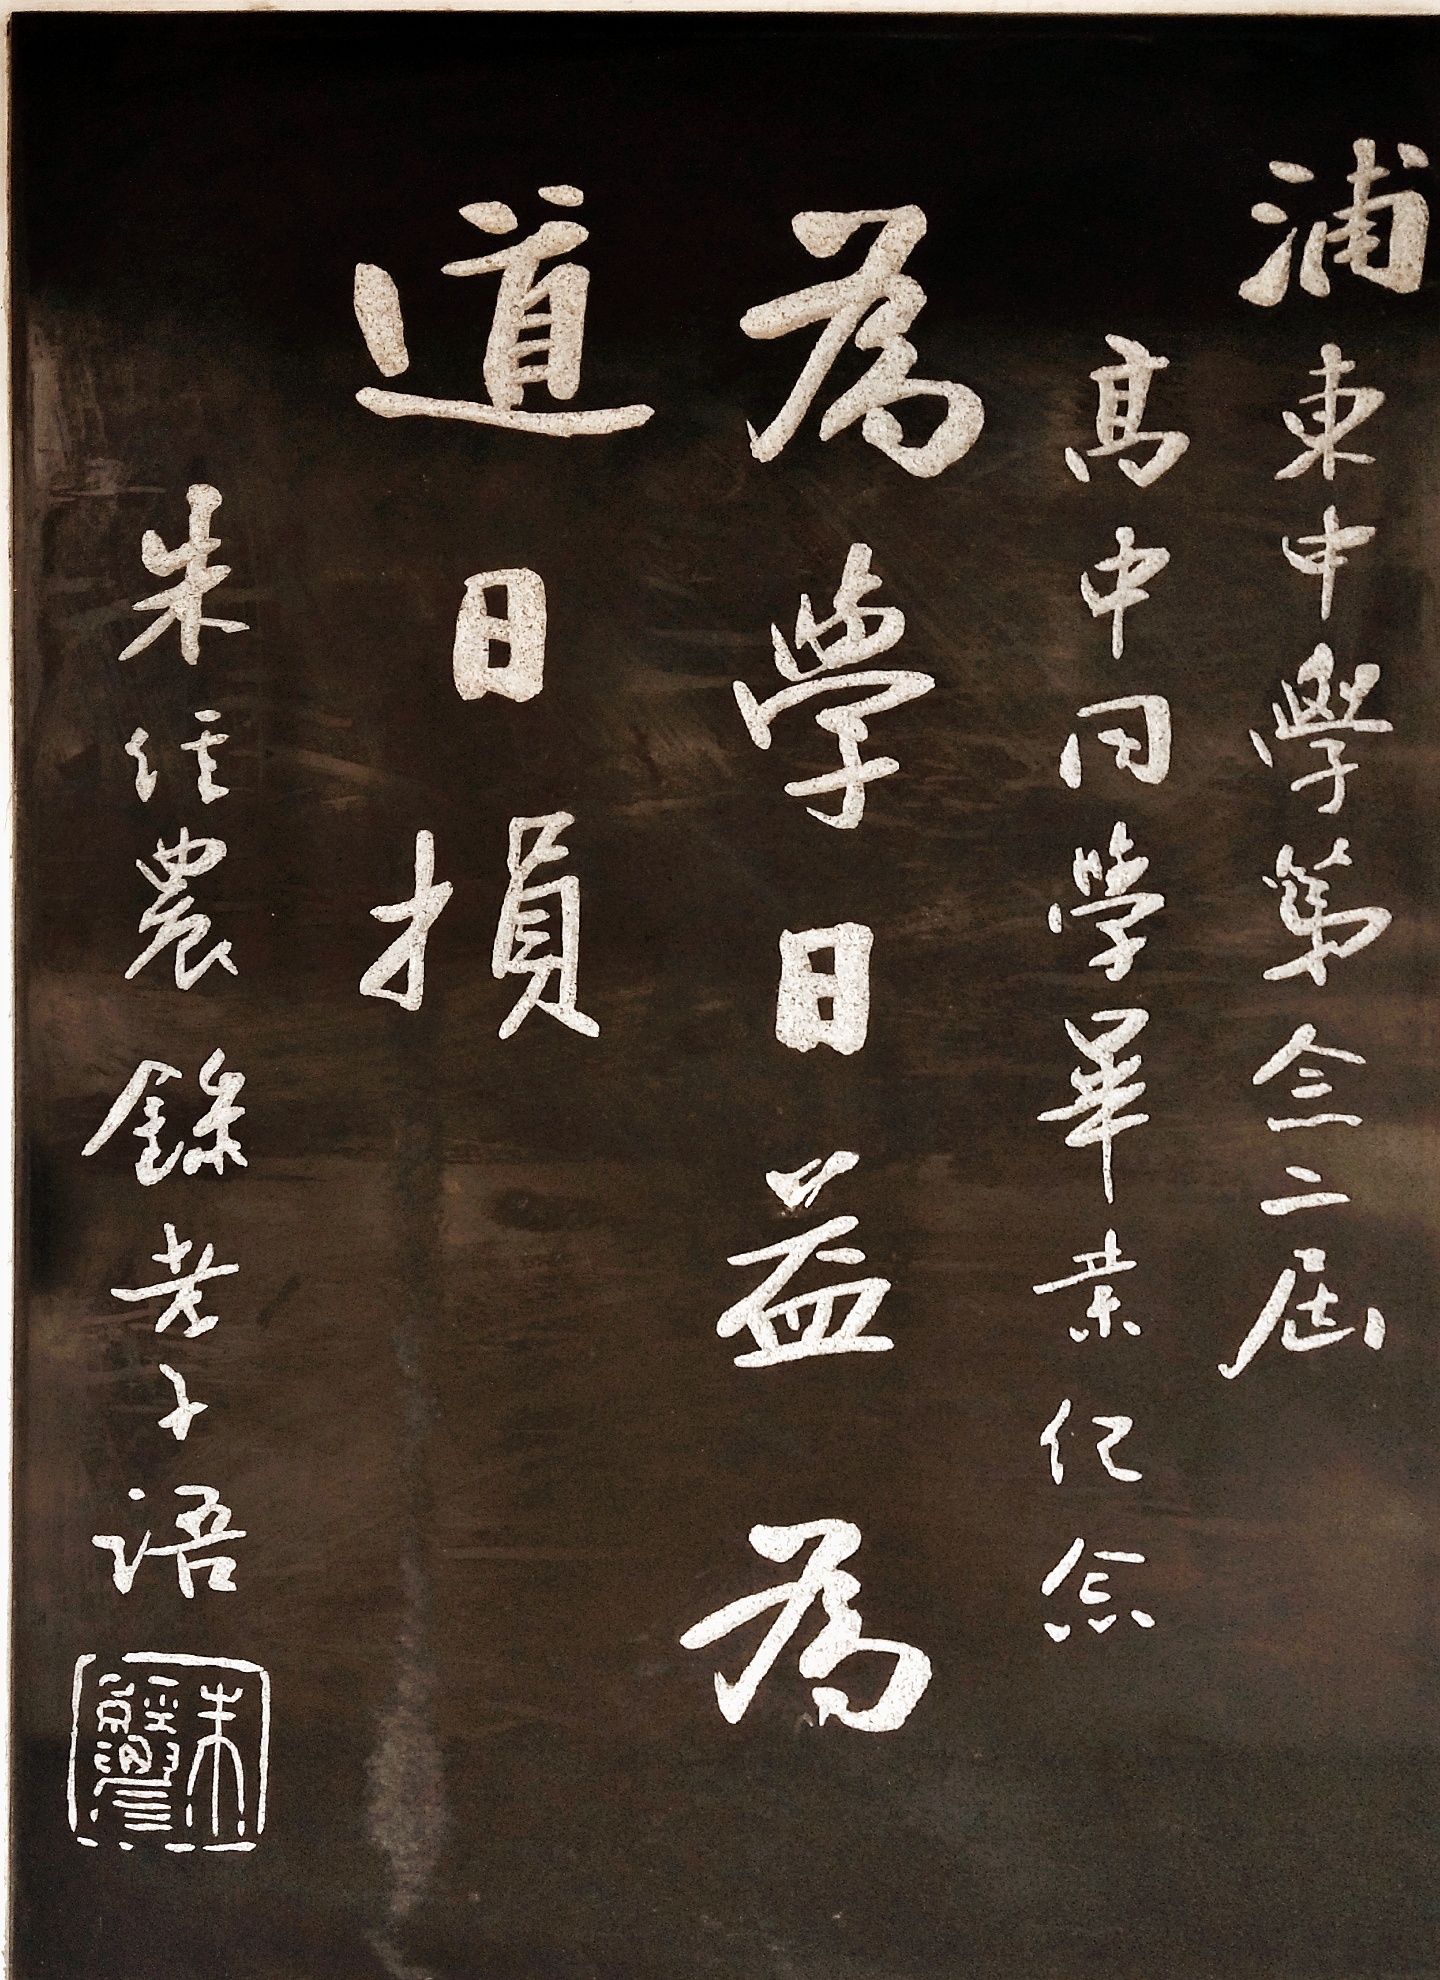 浦東中學第念二屆
高中同學畢業紀念
為學日益為
道日損
朱經農錄老子語